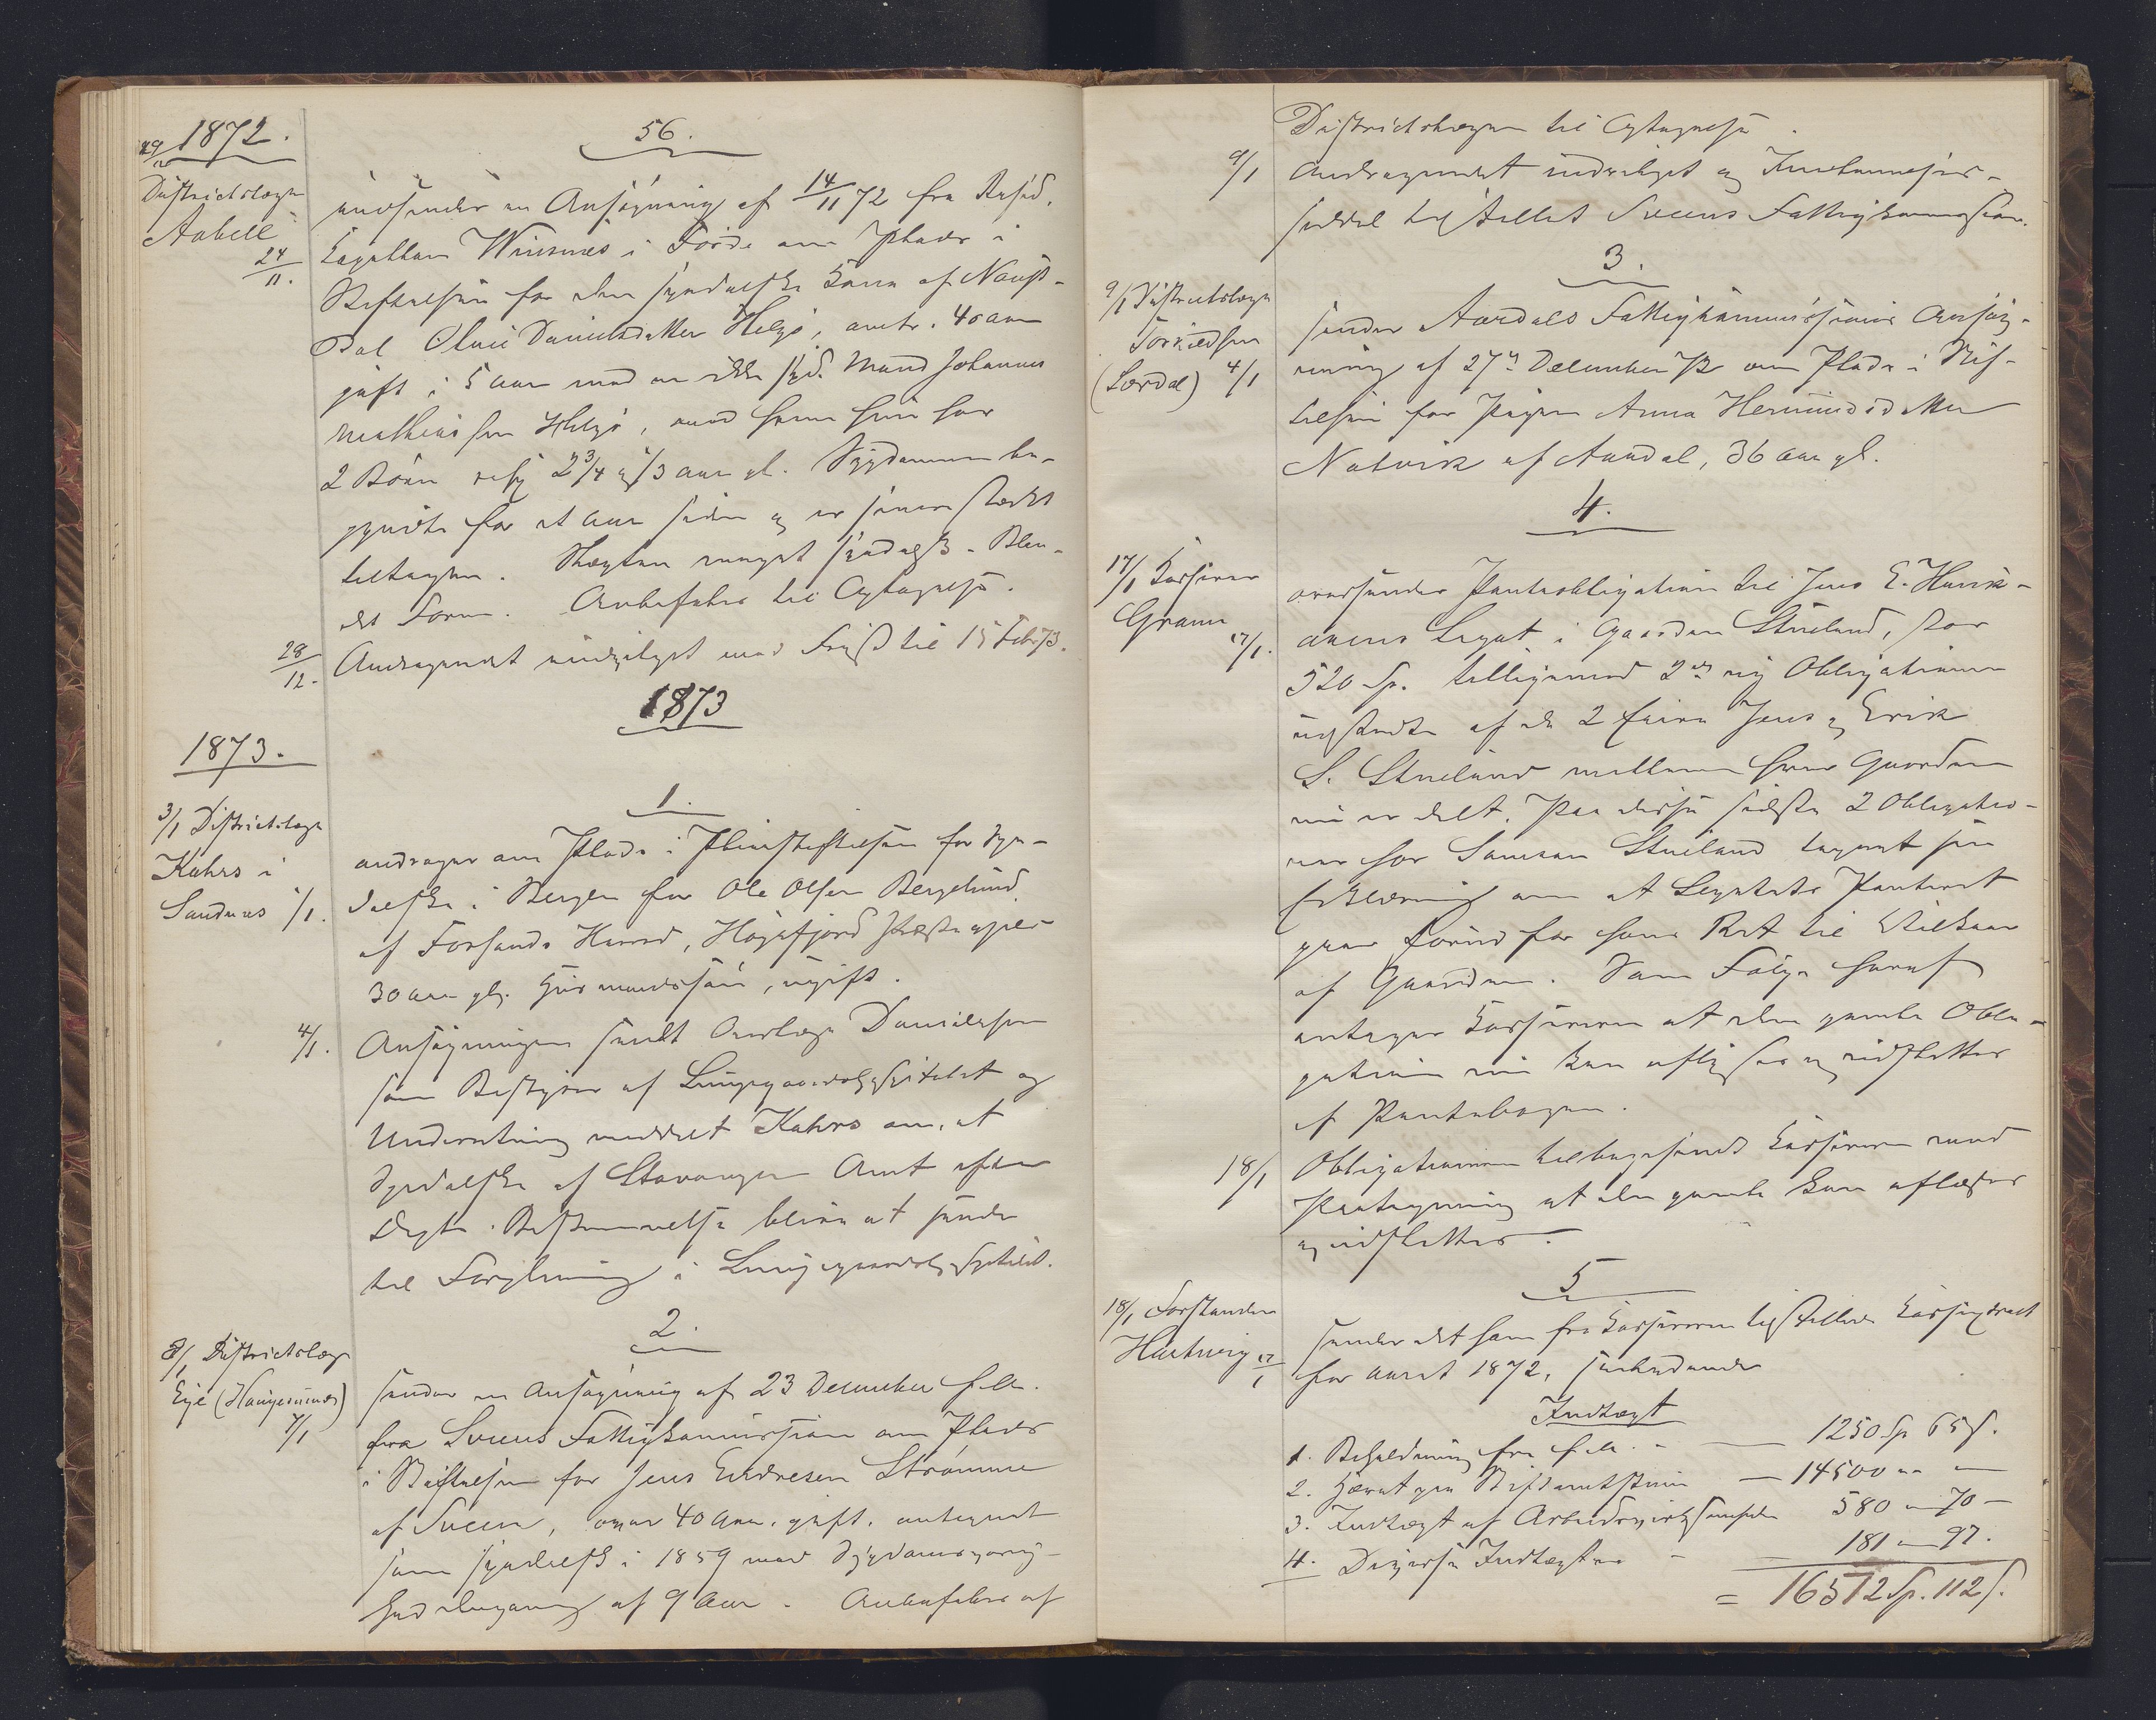 1872.
29/11
Districtslæge
Aabell
24/11.
56.
indsender en Ansøgning af 14/11 72 fra Resid.
Capellan Wiesnæs i Førde om Plads i
Stiftelsen for den spedalske Kone af Naust-
dal Oline Danielsdatter Helgø, antr. 40 aar
gift i 5 aar med en ikke sp.d. Mand Johannes
Mathiassen Helgø, med hvem hun har
2 Børn resp 2 3/4 og 1/3 aar gl. Sygdommen be-
gyndte for et aar siden og er senere stærkt
tiltagen. Slægten meget spedalsk. Blan-
det Form. Anbefales til Optagelse.
28/12.
Andragendet indvilget med Frist til 15 Febr 73.
1873
1873.
3/1 Districtslæge
Kahrs i
Sandnæs 1/1.
1.
andrager om Plads i Pleiestiftelsen for Spe-
dalske i Bergen for Ole Olsen Bergelund
af Forsands Herred, Høgsfjord Præstegjeld
30 aar gl. Huusmandssøn, ugift.
4/1.
Ansøgningen sendt Overlæge Danielssen
som Bestyrer af Lungegaardshospitalet og
Underretning meddelt Kahrs om, at
Spedalske af Stavanger Amt efter
Dep's Bestemmelse bliver at sende
til Forpleining i Lungegaardshospitalet.
8/1 Districtslæge
Eye (Haugesund)
7/1
2.
sender en Ansøgning af 23 December f. A.
fra Sveens Fattigkommission om Plads
i Stiftelsen for Jens Endresen Strømme
af Sveen, over 40 Aar, gift, antegnet
som spedalsk i 1859 med Sygdomsvarig-
hed dengang af 9 Aar. Anbefales af
Districtslægen til Optagelse.
9/1
Andragendet indvilget og Indlæmmelses-
seddel tilstillet Sveens Fattigkommission.
3.
9/1 Districtslæge
Torkildsen
(Lærdal) 4/1
sender Aardals Fattigkommissions Ansøg-
ning af 27de December 72 om Plads i Stif-
telsen for Pigen Anna Hermundsdatter
Natvik af Aardal, 36 Aar gl.
4.
17/1 Kasserer
Gram
17/1.
oversender Panteobligation til Jens E. Henrik-
sens Legat i Gaarden Stueland, stor
520 Sp. tilligemed 2de ny Obligationer
udstedte af de 2 Eiere Jens og Erik
S. Stueland mellem hvem Gaarden
nu er delt. Paa disse sidste 2 Obligatio-
ner har Samson Stueland tegnet sin
Erklæring om at Legatets Panteret
gaar forud for hans Ret til Vilkaar
af Gaarden. Som Følge heraf
antager Kassereren at den gamle Obli-
gation nu kan aflyses og udslettes
af Pantebogen.
18/1
Obligationerne tilbagesendt Kassereren med
Paategning at den gamle kan aflæses
og udslettes.
5
18/1 Forstander
Hartwig 17/1
sender det ham fra Kassereren tilstillede Kasseextract
for Aaret 1872, indeholdende
Indtægt
1. Beholdning fra f. A. - 1250 Sp 65 s.
2. Hævet paa Stiftamtstuen - 14500 " " -
3. Indtægt af Arbeidsvirksomheden 580 " 70 -
4. Diverse Indtægter - 181 " 97.
= 16512 Sp. 112 s.